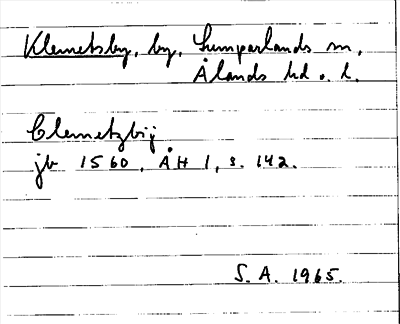 Klemetsby, by, Lumparlands sn,
Ålands hd o. l.
Clemetzbij
jb 1560. ÅH 1, s. 142.
S. A. 1965.